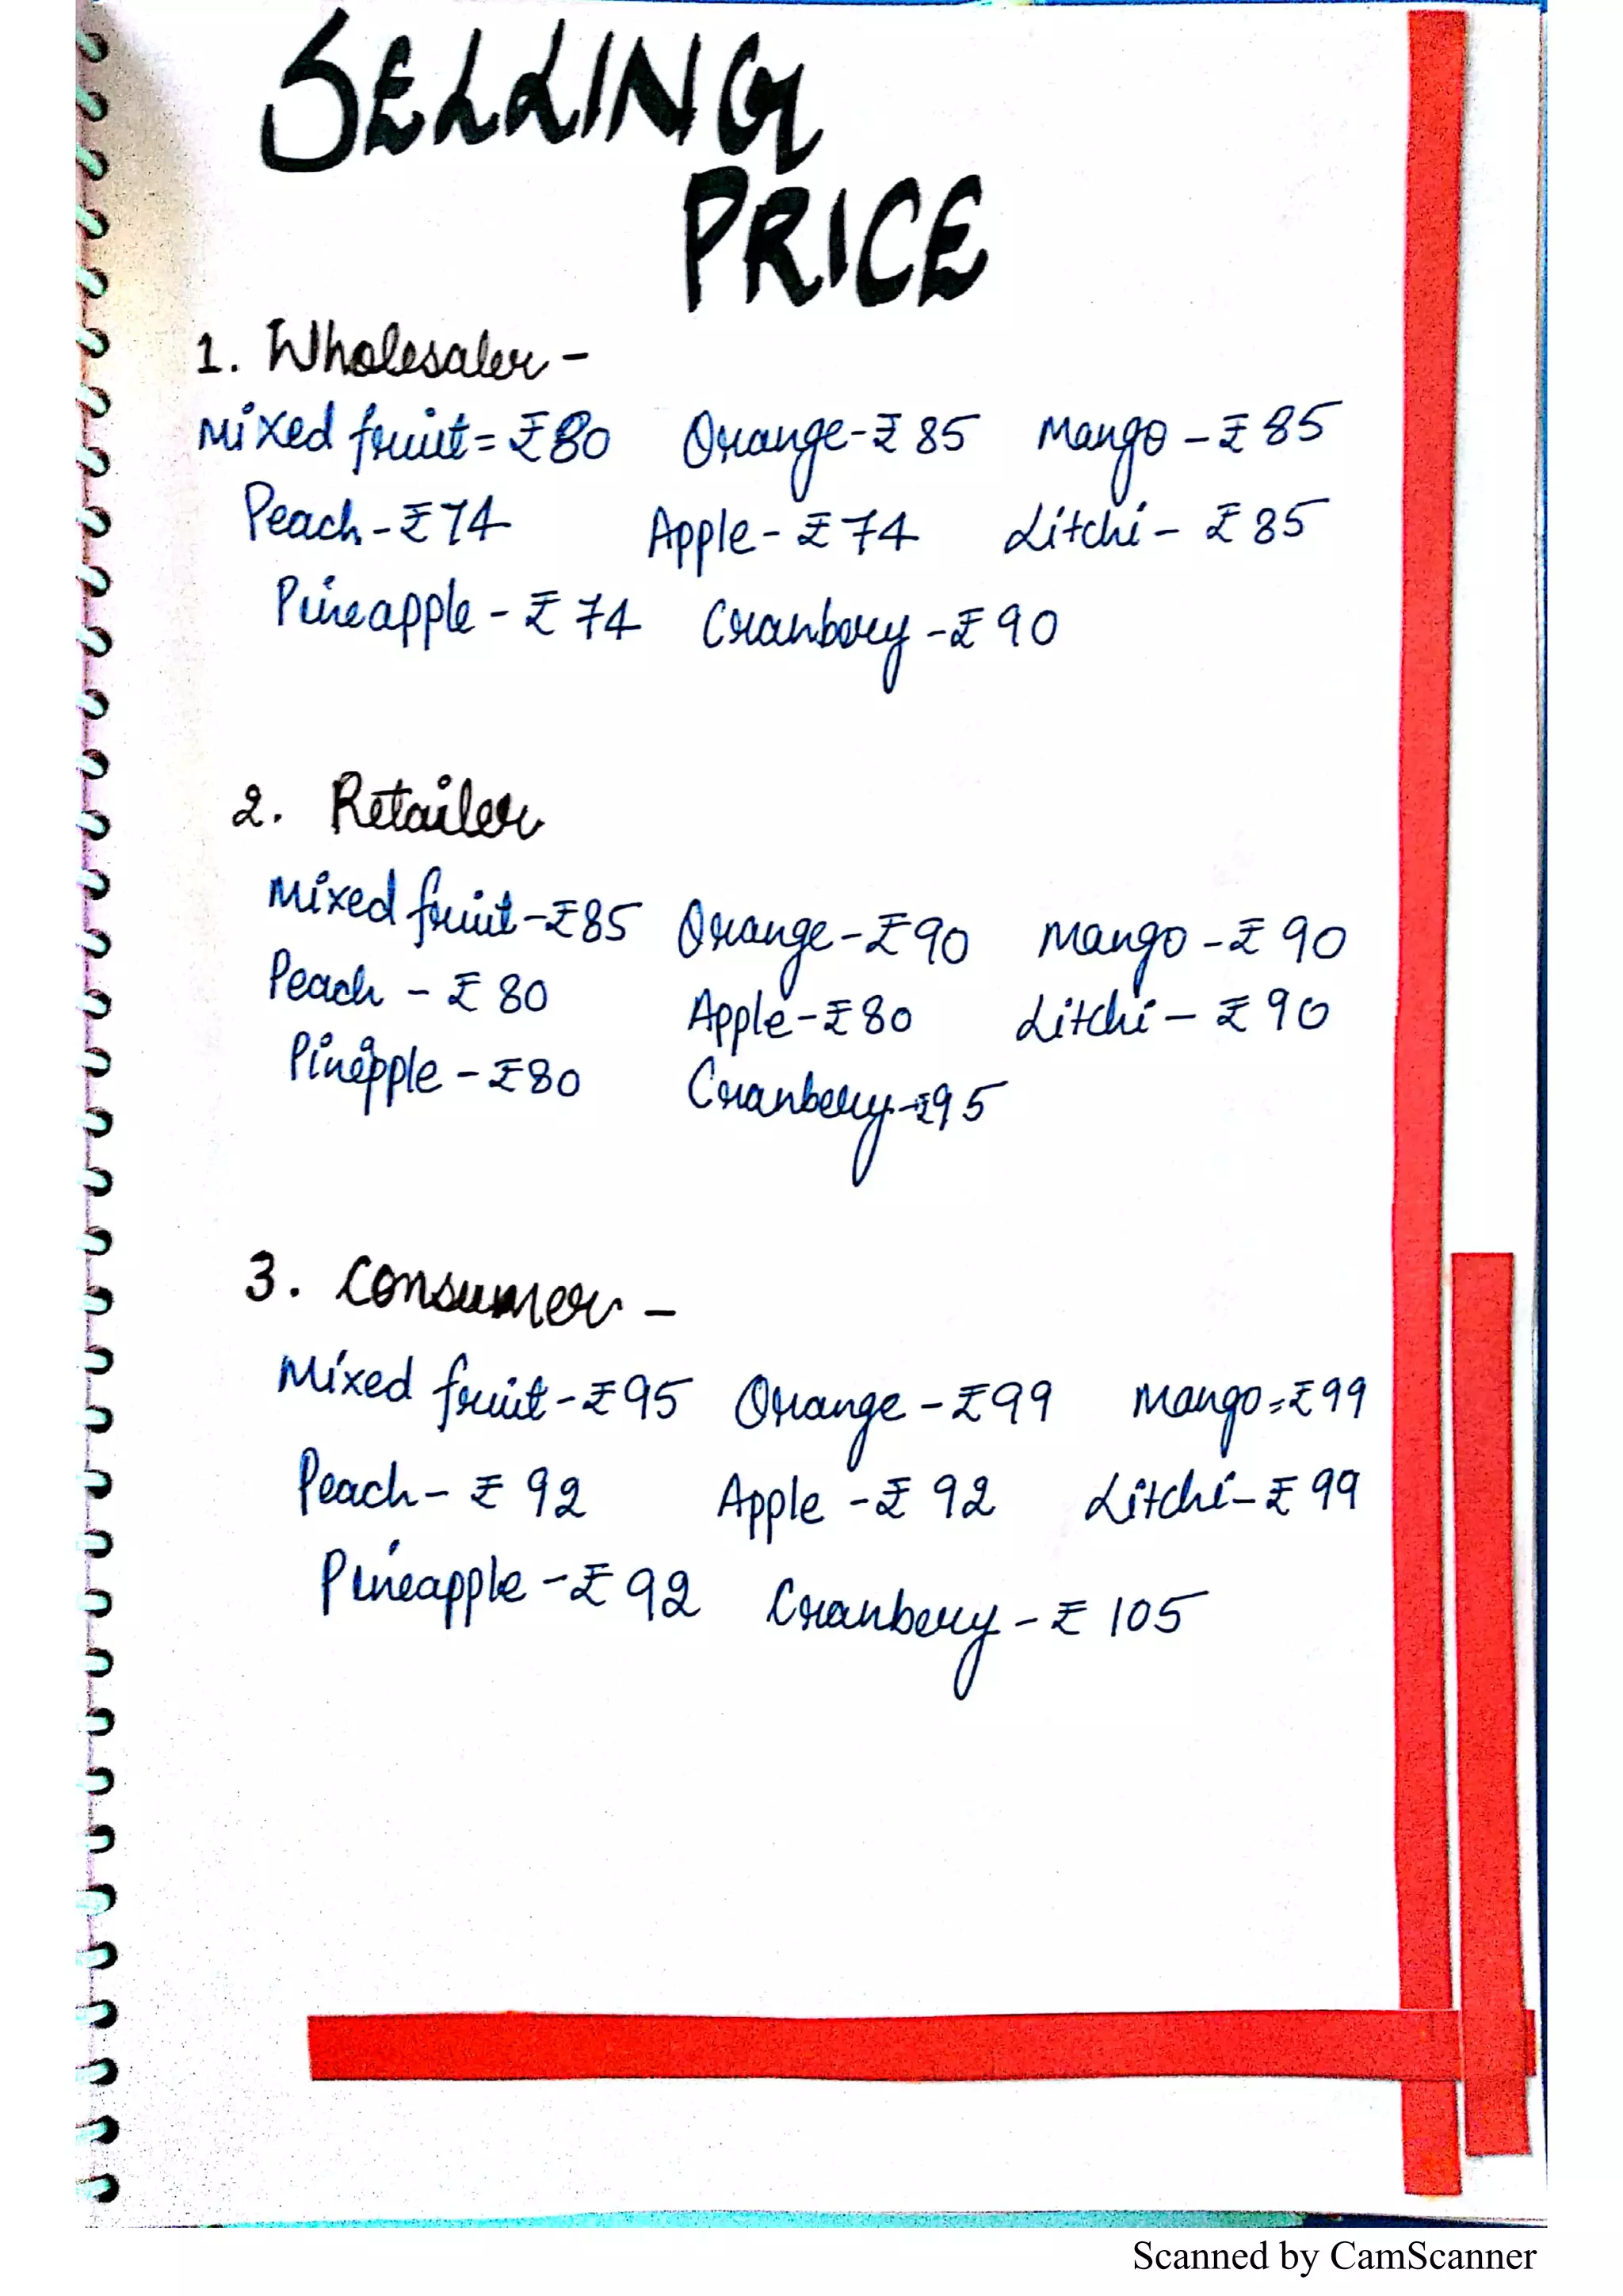 SELLING
PRICE
1. Wholesaler -
Mixed fruit = ₹80 Orange - ₹85 Mango - ₹85
Peach - ₹74 Apple - ₹74 Litchi - ₹85
Pineapple - ₹74 Cranbery - ₹90
2. Retailer
Mixed fruit - ₹85 Orange - ₹90 Mango - ₹90
Peach - ₹80 Apple - ₹80 Litchi - ₹90
Pineapple - ₹80 Cranbery - ₹95
3. Consumer -
Mixed fruit - ₹95 Orange - ₹99 Mango = ₹99
Peach - ₹92 Apple - ₹92 Litchi - ₹99
Pineapple - ₹92 Cranbery - ₹105
Scanned by CamScanner